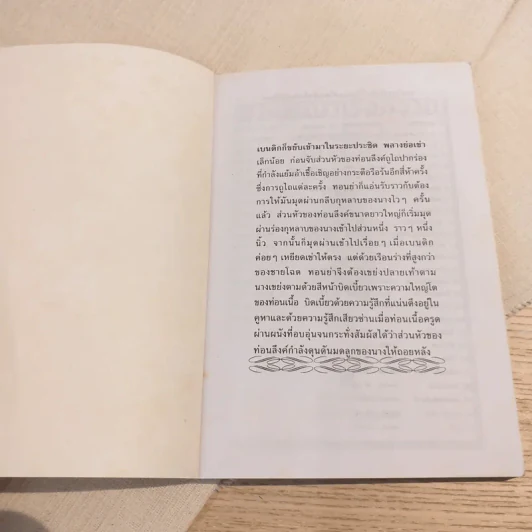 เบนดิกก็ขยับเข้ามาในระยะประชิด พลางย่อเข่า
เล็กน้อย ก่อนจับส่วนหัวของท่อนลึงค์ถูไถปากร่อง
ที่กำลังแย้มอ้าเชื้อเชิญอย่างกระดี๊อรือรันอีกสี่ห้าครั้ง
ซึ่งการถูไถแต่ละครั้ง ทอนย่าก็แอ่นรับราวกับต้อง
การให้มันมุดผ่านกลีบกุหลาบของนางไวๆ ครั้น
แล้ว ส่วนหัวของท่อนลึงค์ขนาดยาวใหญ่ก็เริ่มมุด
ผ่านร่องกุหลาบของนางเข้าไปส่วนหนึ่ง ราวๆ หนึ่ง
นิ้ว จากนั้นก็มุดผ่านเข้าไปเรื่อยๆ เมื่อเบนดิก
ค่อยๆ เหยียดเข่าให้ตรง แต่ด้วยเรือนร่างที่สูงกว่า
ของชายโฉด ทอนย่าจึงต้องเขย่งปลายเท้าตาม
นางเขย่งตามด้วยสีหน้าบิดเบี้ยวเพราะความใหญ่โต
ของท่อนเนื้อ บิดเบี้ยวด้วยความรู้สึกที่แน่นตึงอยู่ใน
คูหาและด้วยความรู้สึกเสียวซ่านเมื่อท่อนเนื้อครูด
ผ่านผนังที่อบอุ่นจนกระทั่งสัมผัสได้ว่าส่วนหัวของ
ท่อนลึงค์กำลังดุนดันมดลูกของนางให้ถอยหลัง